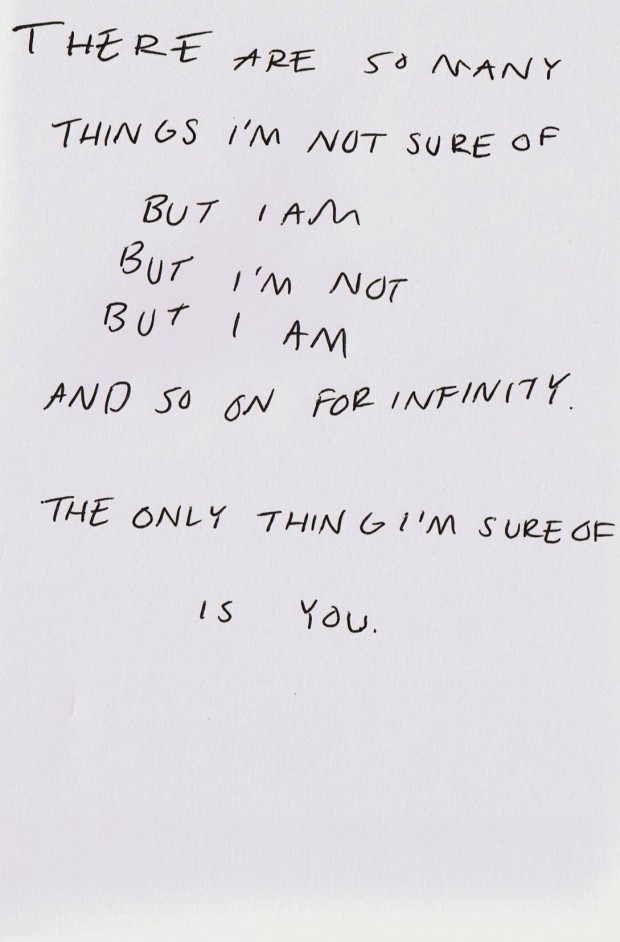 THERE ARE SO MANY
THINGS I'M NOT SURE OF
BUT I AM
BUT I'M NOT
BUT I AM
AND SO ON FOR INFINITY.
THE ONLY THING I'M SURE OF
IS YOU.